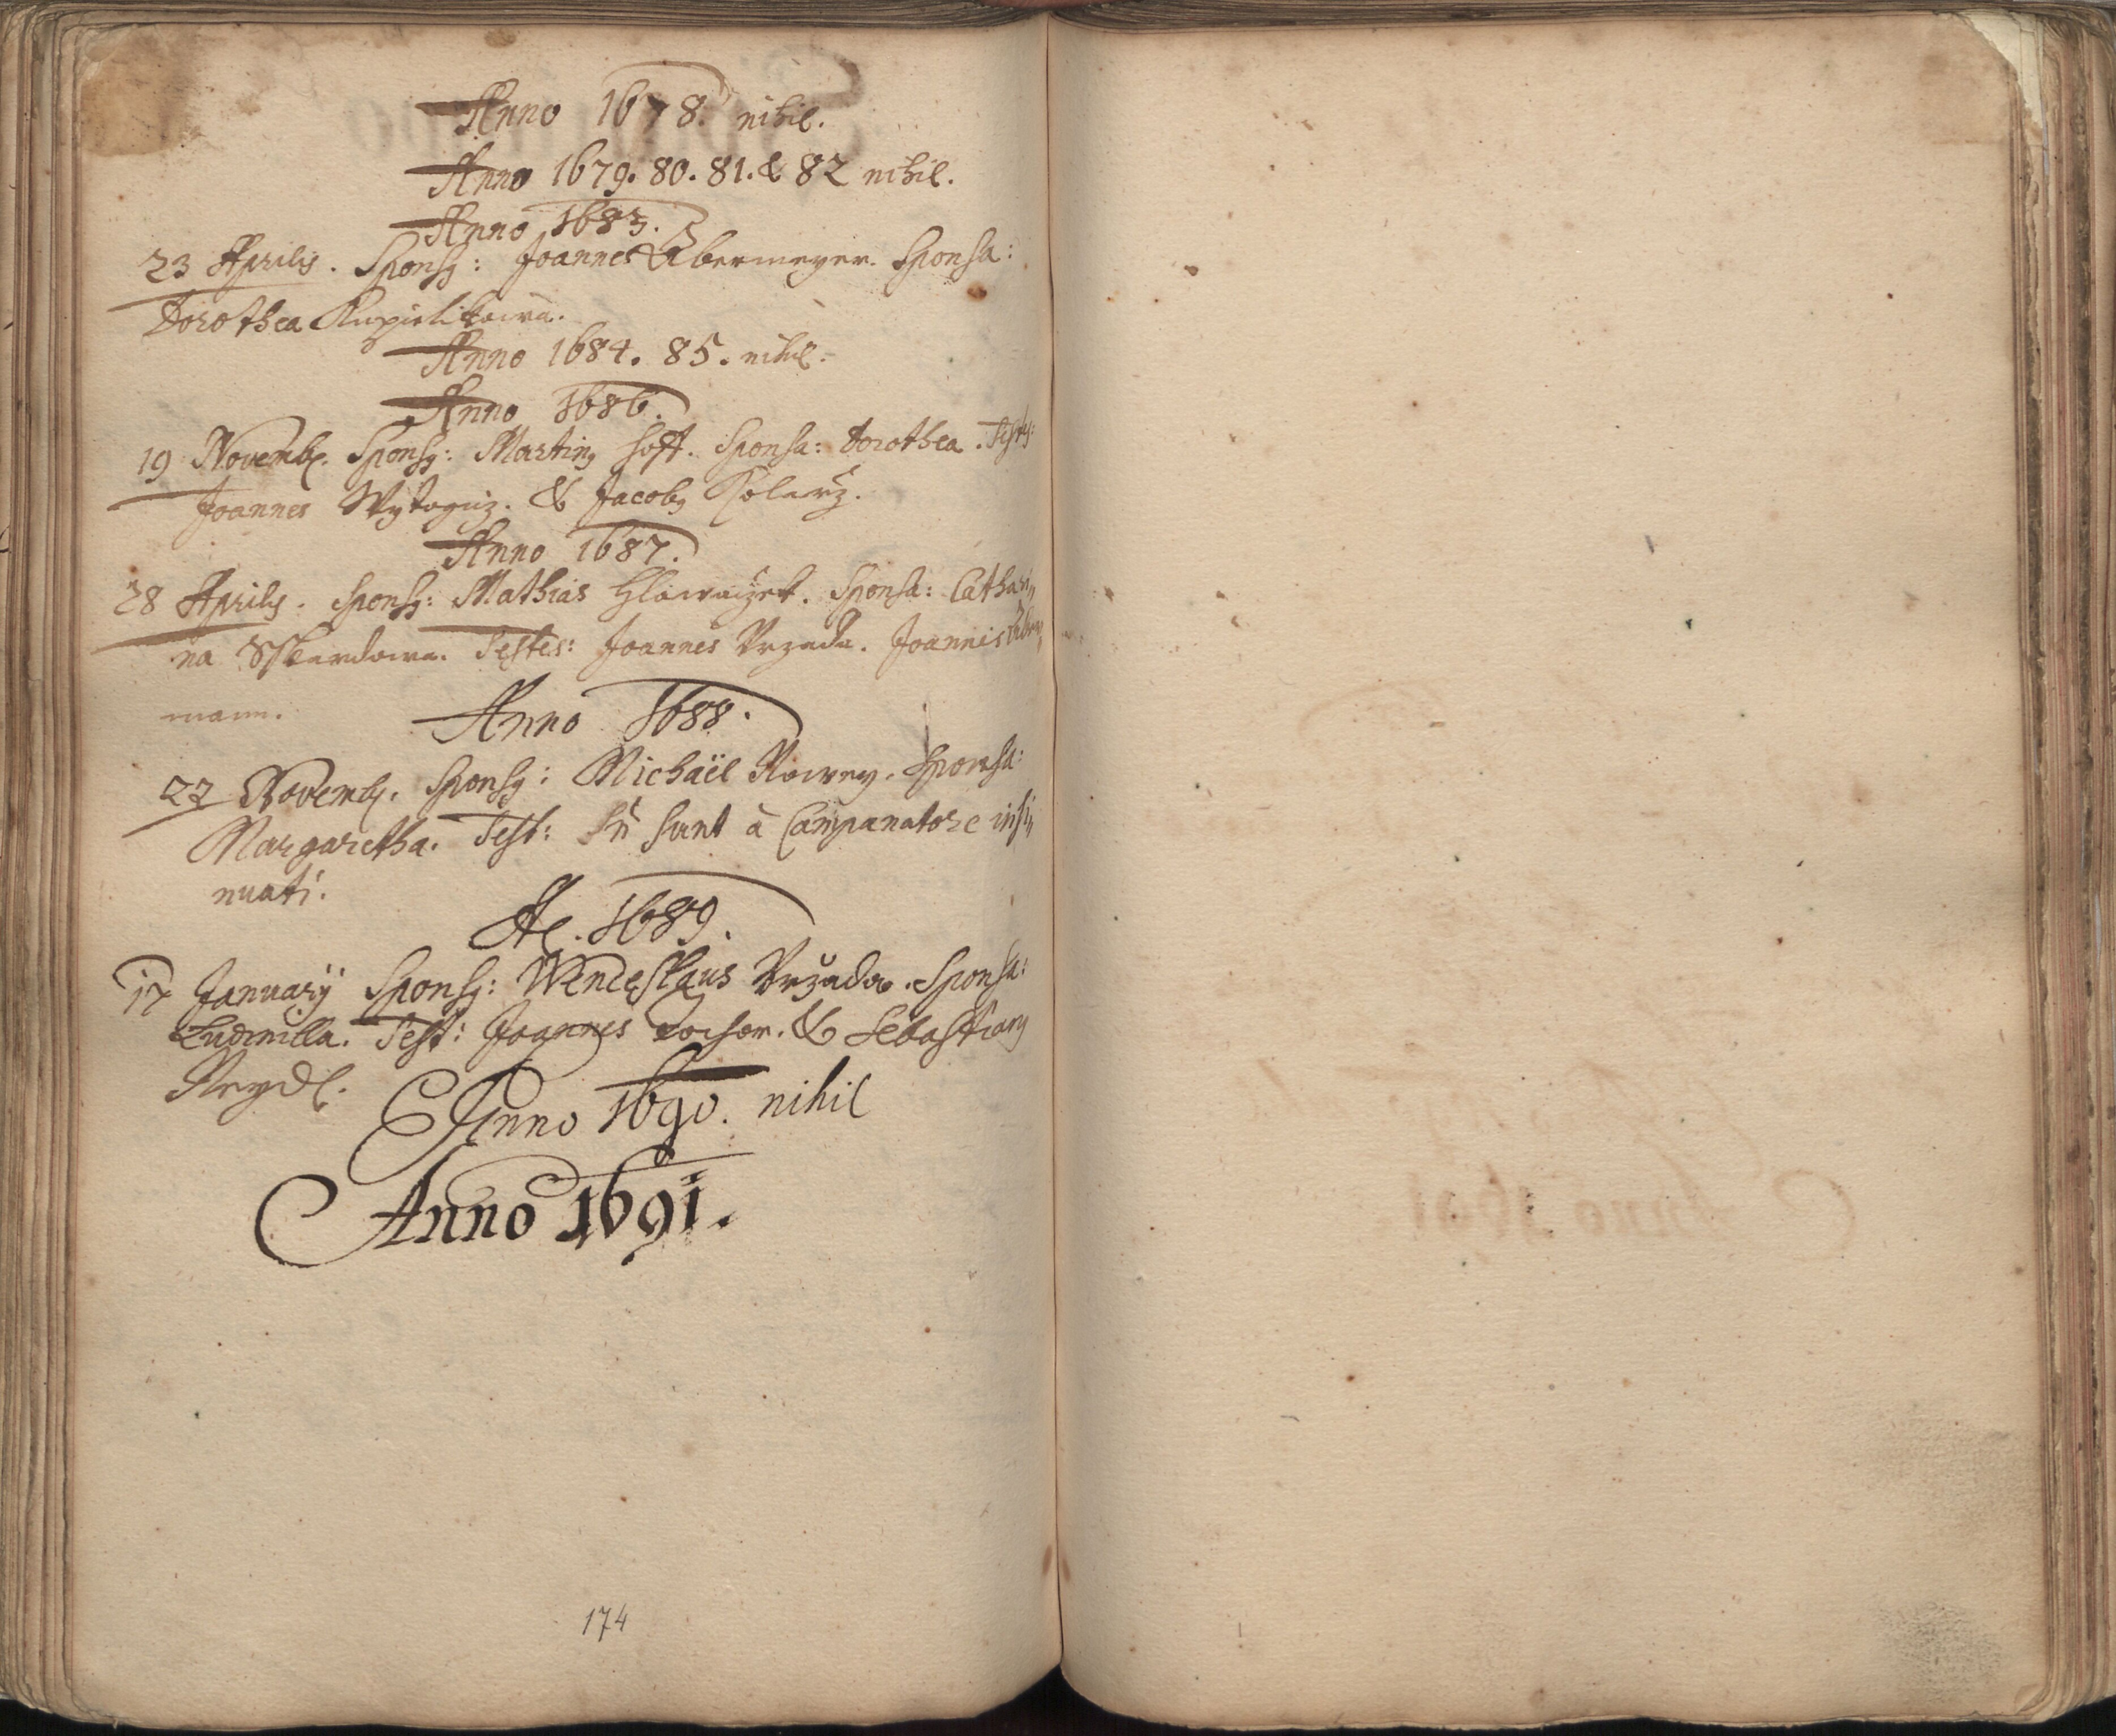 Anno 1678. nihil.
Anno 1679. 80. 81. & 82 nihil.
Anno 1683.
23 Aprilis. Sponsꝯ: Joannes Sponsa:
Dorothea
Anno 1684. 85. nihil.
Anno 1686.
19 Novemb. Sponsꝯ: Martinꝯ Hoff. Sponsa: Dorothea.
Joannes & Jacobꝯ Kolarž.
Anno 1687.
28 Aprilis. Sponsꝯ: Mathias Sponsa: Cathari„
na Testes: Joannes Vrzada. Joannis
mann.
Anno 1688.
22 Novemb. Sponsꝯ: Michaël Sponsa:
Margaretha. Test: sunt à Campanatore insi„
nuati.
Ao. 1689.
17 Januarÿ Sponsꝯ: Wenceslaus Vržada. Sponsa:
Ludmilla. Test: Joannes & Sebastianꝯ
Anno 1690. nihil
Anno 1691.
174